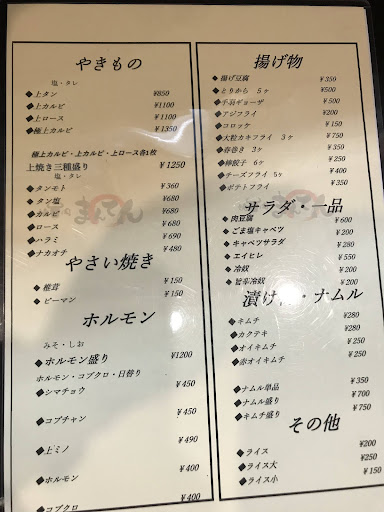 やきもの
塩・タレ
◆上タン ¥850
◆上カルビ ¥1100
◆上ロース ¥1100
◆極上カルビ ¥1350
極上カルビ・上カルビ・上ロース各1枚
上焼き三種盛り ¥1250
塩・タレ
◆タンモト ¥360
◆タン塩 ¥680
◆カルビ ¥680
◆ロース ¥680
◆ハラミ ¥690
◆ナカオチ ¥480
やさい焼き
◆椎茸 ¥150
◆ピーマン ¥150
ホルモン
みそ・しお
◆ホルモン盛り ¥1200
ホルモン・コブクロ・日替り
◆シマチョウ ¥450
◆コプチャン ¥450
◆上ミノ ¥490
◆ホルモン ¥400
◆コブクロ ¥400
揚げ物
◆揚げ豆腐 ¥350
◆とりから 5ヶ ¥500
◆手羽ギョーザ ¥500
◆アジフライ ¥200
◆コロッケ ¥200
◆大粒カキフライ 3ヶ ¥750
◆春巻き 3ヶ ¥350
◆棒餃子 6ヶ ¥250
◆チーズフライ 5ヶ ¥350
◆ポテトフライ ¥350
サラダ・一品
◆肉豆腐 ¥600
◆ごま塩キャベツ ¥200
◆キャベツサラダ ¥200
◆エイヒレ ¥550
◆冷奴 ¥200
◆旨辛冷奴 ¥200
漬け・ナムル
◆キムチ ¥280
◆カクテキ ¥280
◆オイキムチ ¥280
◆赤オイキムチ ¥280
◆ナムル単品 ¥350
◆ナムル盛り ¥700
◆キムチ盛り ¥750
その他
◆ライス ¥200
◆ライス大 ¥250
◆ライス小 ¥150